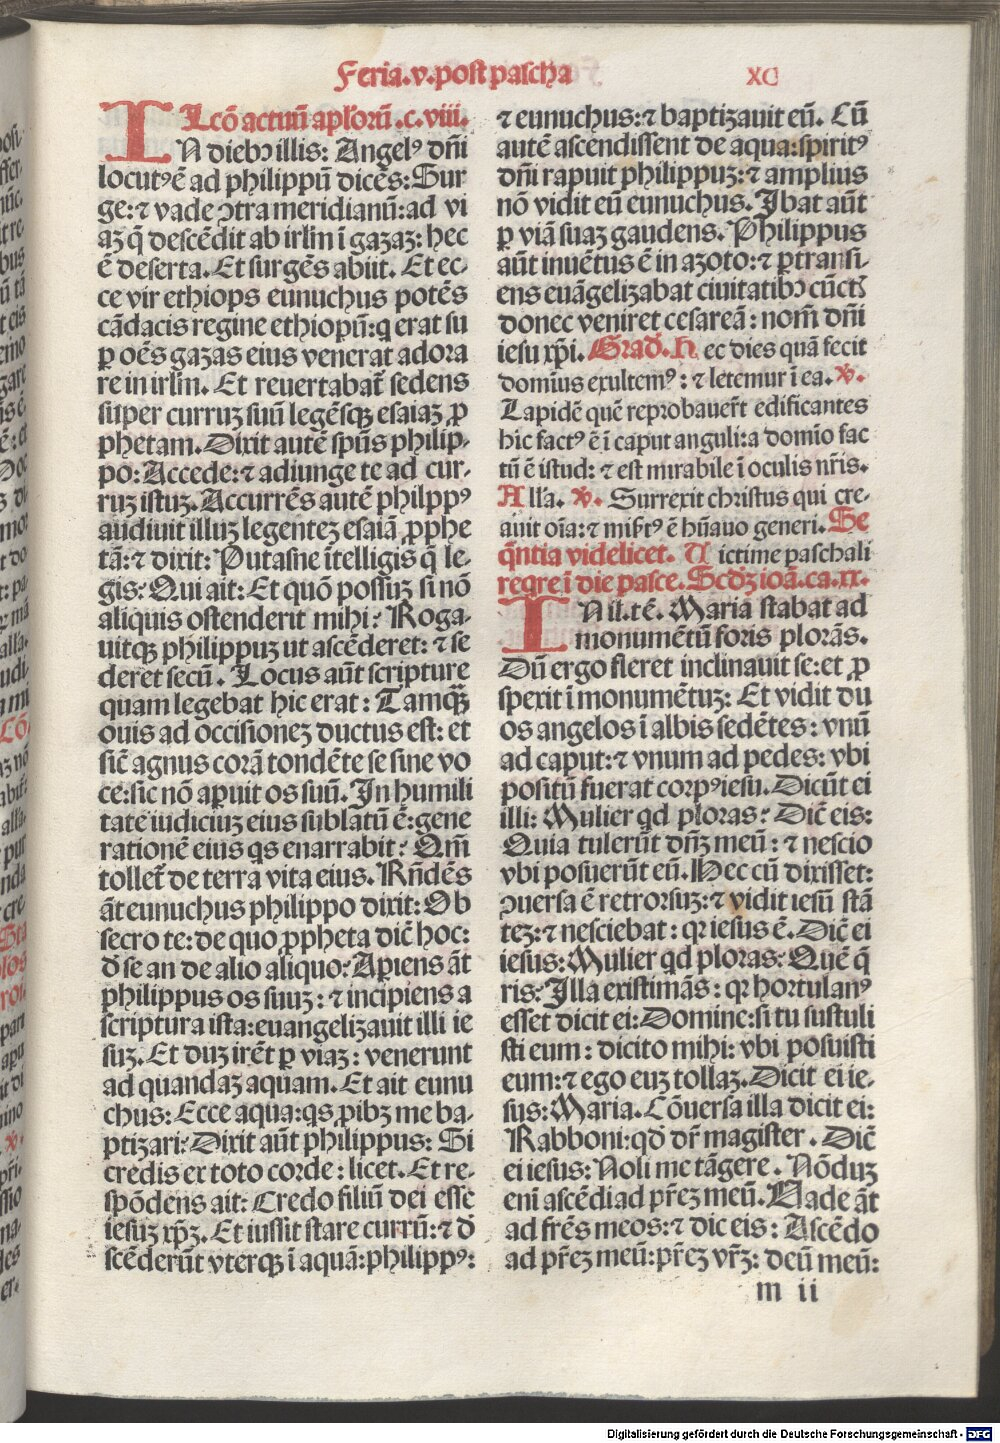 Feria.v.post pascha
XC
Lcõ actuũ aplorũ.c.viii.
IN dieb⁹ illis: Angel⁹ dñi
locut⁹ ẽ ad philippũ dicẽs: Sur
ge: ⁊ vade ↄtra meridianũ: ad vi
aȝ q̃ descẽdit ab irlm̃ ĩ gazaȝ: hec
ẽ deserta. Et surgẽs abiit. Et ec-
ce vir ethiops eunuchus potẽs
cãdacis regine ethiopũ: q̃ erat su
ꝑ oẽs gazas eius venerat adora
re in irlm̃. Et reuertabat̃ sedens
super curruȝ suũ legẽsqȝ esaiaȝ ꝓ
phetam. Dixit autẽ spũs philip-
po: Accede: ⁊ adiunge te ad cur-
ruȝ istuȝ. Accurrẽs autẽ philpp⁹
audiuit illuȝ legenteȝ esaiã ꝓphe
tã: ⁊ dixit: Putasne ĩtelligis q̃ le-
gis? Qui ait: Et quõ possuȝ si nõ
aliquis ostenderit mihi? Roga-
uitqȝ philippuȝ ut ascẽderet: ⁊ se
deret secũ. Locus aũt scripture
quam legebat hic erat: Tamqȝ̃
ouis ad occisioneȝ ductus est: et
sic̃ agnus corã tondẽte se sine vo
ce: sic nõ aꝑuit os suũ. In humili
tate iudiciuȝ eius sublatũ ẽ: gene
rationẽ eius qs enarrabit? Qm̃
tollet̃ de terra vita eius. Rñdẽs
ãt eunuchus philippo dixit: Ob
secro te: de quo ꝓpheta dic̃ hoc:
d̃ se an de alio aliquo? Apiens ãt
philippus os suuȝ: ⁊ incipiens a
scriptura ista: euangelizauit illi ie
suȝ. Et duȝ irẽt ꝑ viaȝ: venerunt
ad quandaȝ aquam. Et ait eunu
chus: Ecce aqua: qs ꝓibȝ me ba-
ptizari? Dixit aũt philippus: Si
credis ex toto corde: licet. Et re-
spõdens ait: Credo filiũ dei esse
iesuȝ xp̃ȝ. Et iussit stare currũ: ⁊ d̃
scẽderũt vterqȝ ĩ aquã: philipp⁹:
⁊ eunuchus: ⁊ baptizauit eũ. Cũ
autẽ ascendissent de aqua: spirit⁹
dñi rapuit philippuȝ: ⁊ amplius
nõ vidit eũ eunuchus. Ibat aũt
ꝑ viã suaȝ gaudens. Philippus
aũt inuẽtus ẽ in azoto: ⁊ ꝑtransi-
ens euãgelizabat ciuitatibↄ cũct̃
donec veniret cesareã: nom̃ dñi
iesu xp̃i. Grad̃. H ec dies quã fecit
domĩus exultem⁹: ⁊ letemur ĩ ea. v̾.
Lapidẽ quẽ reprobauer̃t edificantes
hic fact⁹ ẽ ĩ caput anguli: a domĩo fac
tũ ẽ istud: ⁊ est mirabile ĩ oculis nr̃is.
Alla. v̾. Surrexit christus qui cre-
auit oĩa: ⁊ misert⁹ ẽ hũauo generi. Se
q̃ntia videlicet. V ictime paschali
reqre ĩ die pasce. Scd̃ȝ ioã.ca.xx.
IN il.tẽ. Maria stabat ad
monumẽtũ foris plorãs.
Dũ ergo fleret inclinauit se: et ꝓ
spexit ĩ monumẽtuȝ: Et vidit du
os angelos ĩ albis sedẽtes: vnũ
ad caput: ⁊ vnum ad pedes: vbi
positũ fuerat corp⁹ iesu. Dicũt ei
illi: Mulier qd ploras? Dic̃ eis:
Quia tulerũt dñȝ meũ: ⁊ nescio
vbi posuerũt eũ. Hec cũ dixisset:
ↄuersa ẽ retrorsuȝ: ⁊ vidit iesũ stã
teȝ: ⁊ nesciebat: qr iesus ẽ. Dic̃ ei
iesus: Mulier qd ploras? Quẽ q̃
ris? Illa existimãs: qr hortulan⁹
esset dicit ei: Domine: si tu sustuli
sti eum: dicito mihi: vbi posuisti
eum: ⁊ ego euȝ tollaȝ. Dicit ei ie-
sus: Maria. Cõuersa illa dicit ei:
Rabboni: qd̃ dr̃ magister. Dic̃
ei iesus: Noli me tãgere. Nõduȝ
enĩ ascẽdi ad pr̃eȝ meũ. Uade ãt
ad fr̃es meos: ⁊ dic eis: Ascẽdo
ad pr̃eȝ meũ: pr̃eȝ vr̃ȝ: deũ meũ:
m ii
Digitalisierung gefördert durch die Deutsche Forschungsgemeinschaft - DFG